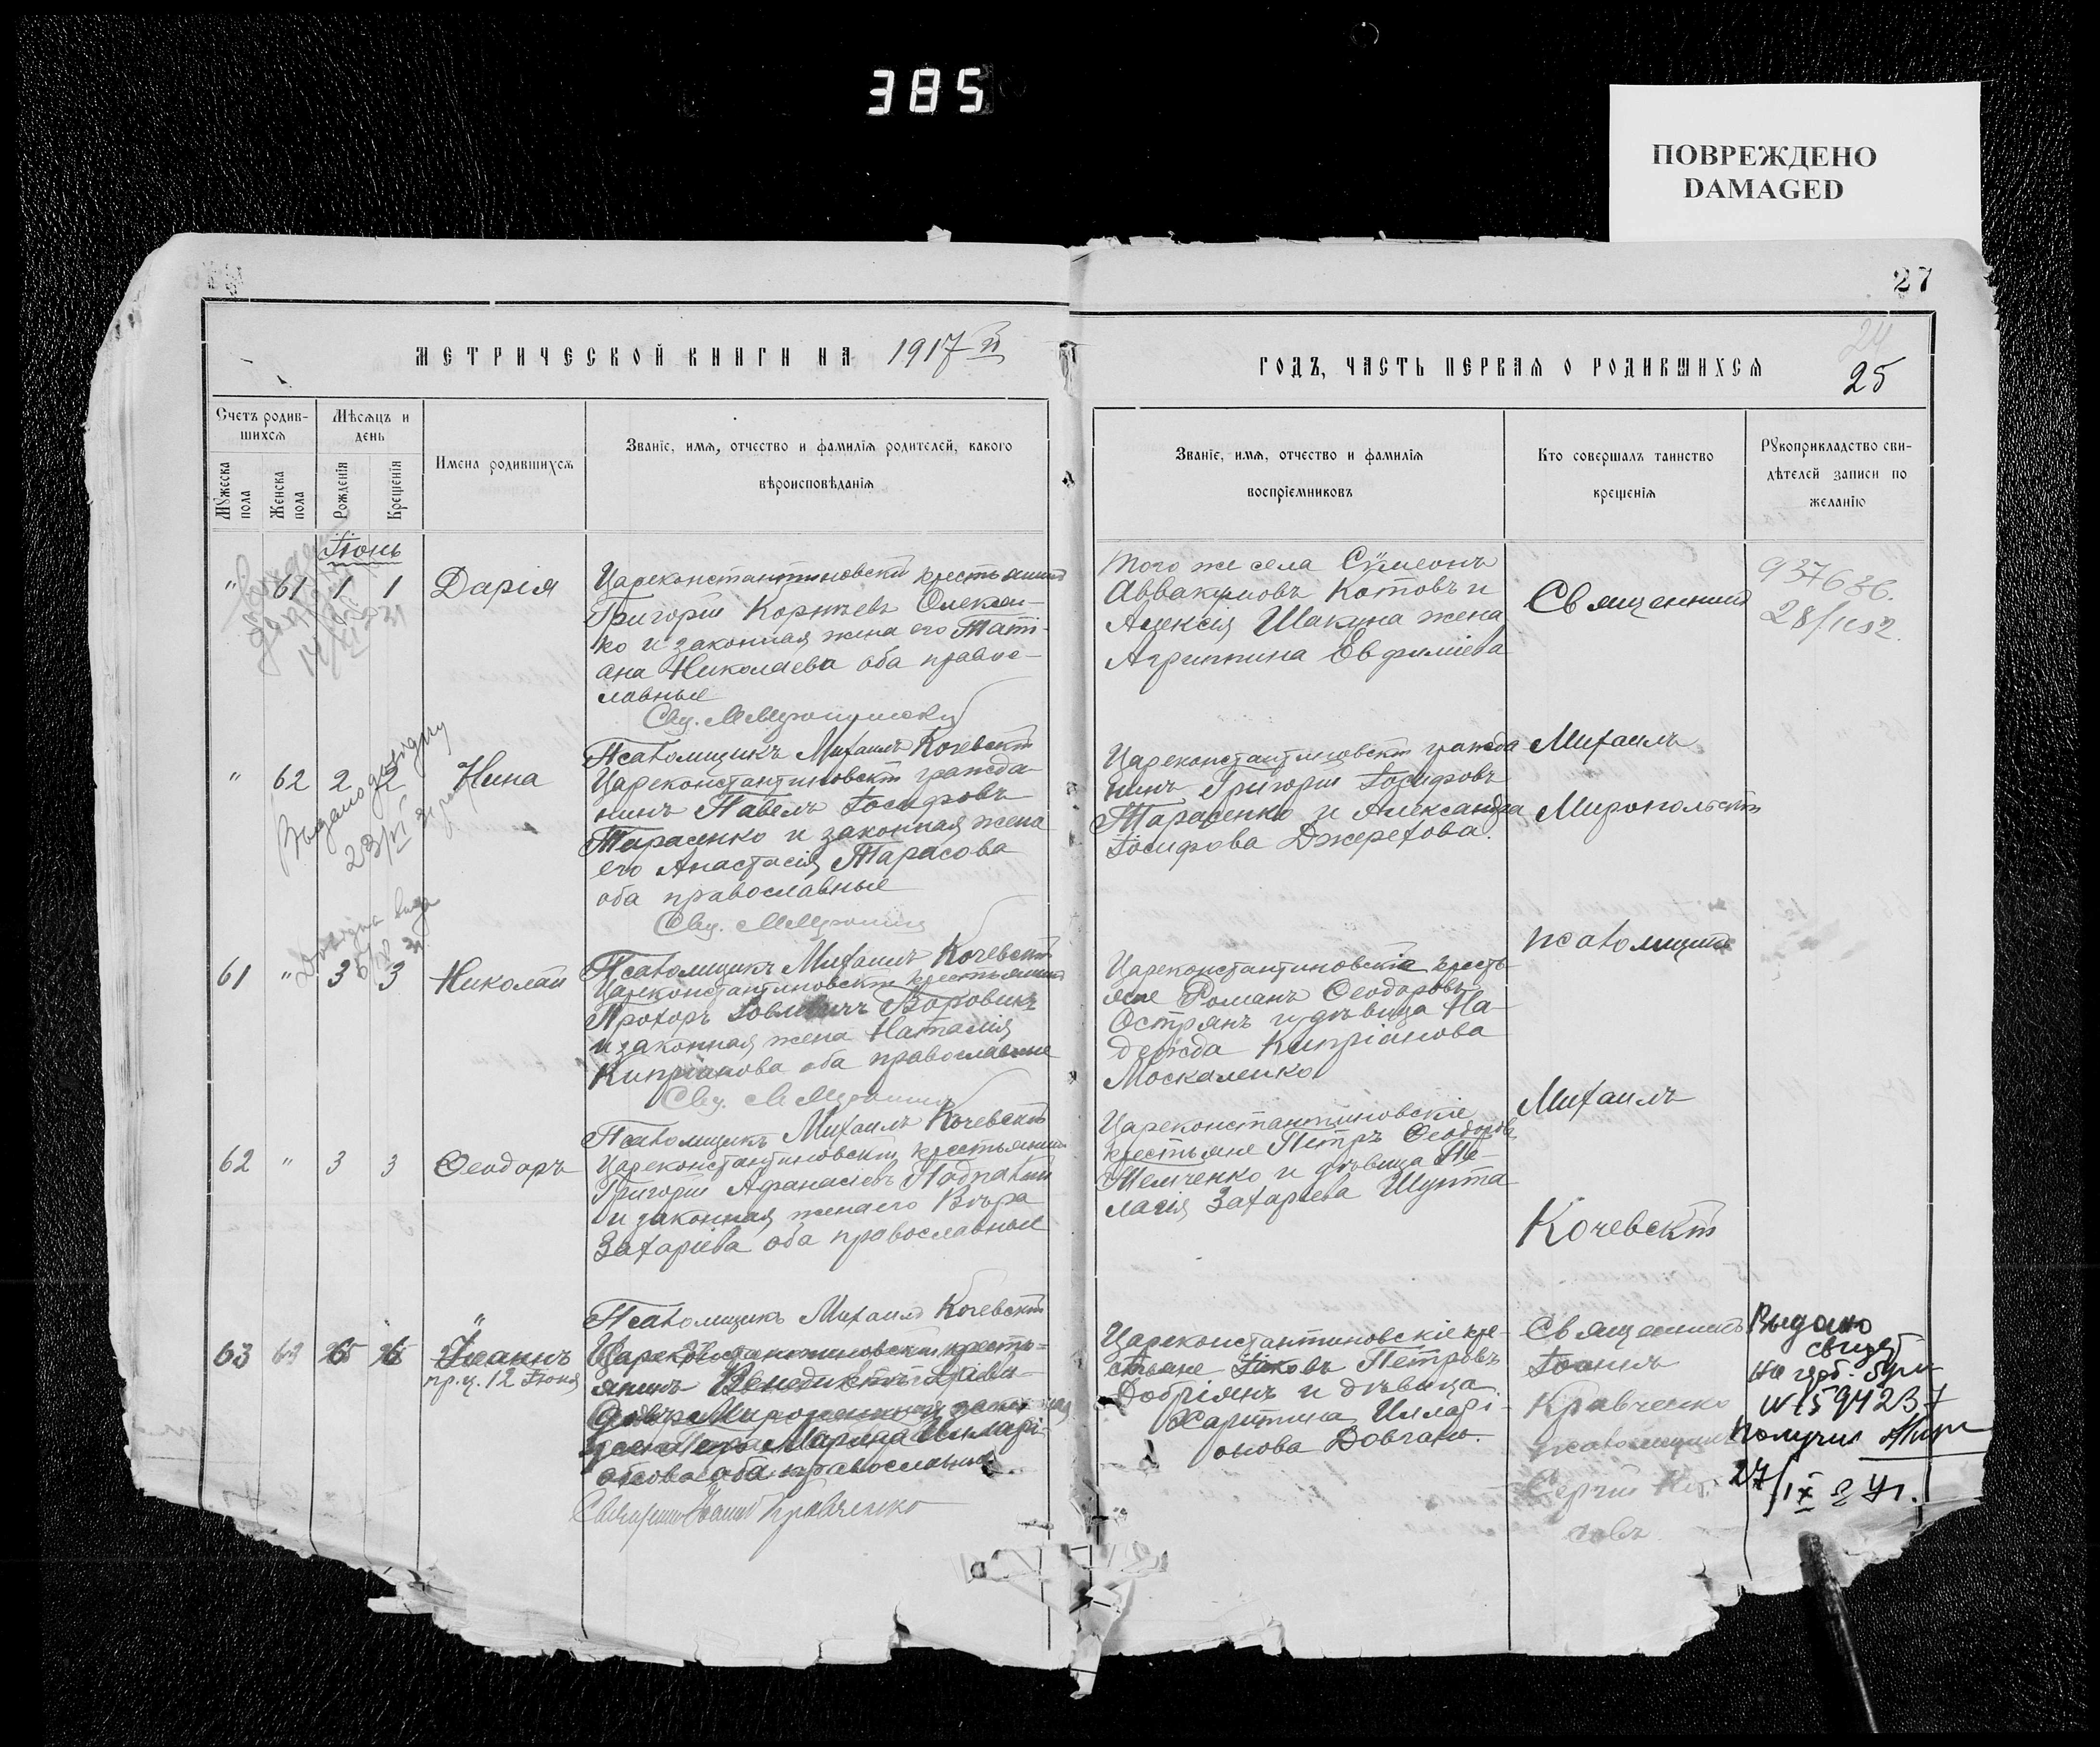 385
ПОВРЕЖДЕНО
DAMAGED
27
МЕТРИЧЕСКОЙ КНИГИ НА 1917 й
ГОДЪ, ЧАСТЬ ПЕРВАЯ О РОДИВШИХСЯ
24
25
Счетъ родив-
шихся
Мѣсяцъ и
день
Мужеска
пола
Женска
пола
Рожденія
Крещенія
Имена родившихся
Званіе, имя, отчество и фамилія родителей, какого
вѣроисповѣданія
Званіе, имя, отчество и фамилія
воспріемниковъ
Кто совершалъ таинство
крещенія
Рукоприкладство сви-
дѣтелей записи по
желанію
Іюнь
" 61 1 1 Дарія
Цареконстантиновскій крестьянинъ
Григорій Корнѣевъ Олексен-
ко и законная жена его Таті-
ана Николаева оба право-
славные
Того же села Сѵмеонъ
Аввакумовъ Котовъ и
Алексія Шакуна жена
Агриппина Евфиміева
Священникъ
937636.
Псаломщикъ Михаилъ Кочевскій
" 62 2 2 Нина
Цареконстантиновскій гражда-
нинъ Павелъ Іосифовъ
Тарасенко и законная жена
его Анастасія Тарасова
оба православные
Цареконстантиновскій гражда
нинъ Григорій Іосифовъ
Тарасенко и Александра
Іосифова Джерехова.
Михаилъ
Миропольскій
Псаломщикъ Михаилъ Кочевскій
61 " 3 3 Николай
Цареконстантиновскій крестьянинъ
Прохоръ Іовлевичъ Боровикъ
и законная жена Наталія
Кипріанова оба православные
Цареконстантиновскіе кресть-
яне Романъ Ѳеодоровъ
Острянъ и дѣвица На-
дежда Кипріанова
Москаленко
псаломщикъ
Псаломщикъ Михаилъ Кочевскій
62 " 3 3 Ѳеодоръ
Цареконстантиновскій крестьянинъ
Григорій Афанасіевъ
и законная жена его Вѣра
Захаріева оба православные
Цареконстантиновскіе
крестьяне Петръ Ѳеодоровъ
и дѣвица Пе-
лагія Захаріева Шупта
Михаилъ
Кочевскій
Псаломщикъ Михаилъ Кочевскій
63 63 Іоаннъ
12 Іюня
Цареконстантиновскій кресть-
янинъ Венедиктъ
Мироненко
Марина Иларі-
онова оба православные
Священникъ Іоаннъ Кравченко
Цареконстантиновскіе кре-
стьяне Іаковъ Петровъ
Добріянъ и дѣвица
Харитина Иларі-
онова Довгань.
Священникъ
Іоаннъ
Кравченко
псаломщикъ
Сергій
Выдано
свидѣт
на герб. бум
№ 159423
Получил
27/IX 24 г.